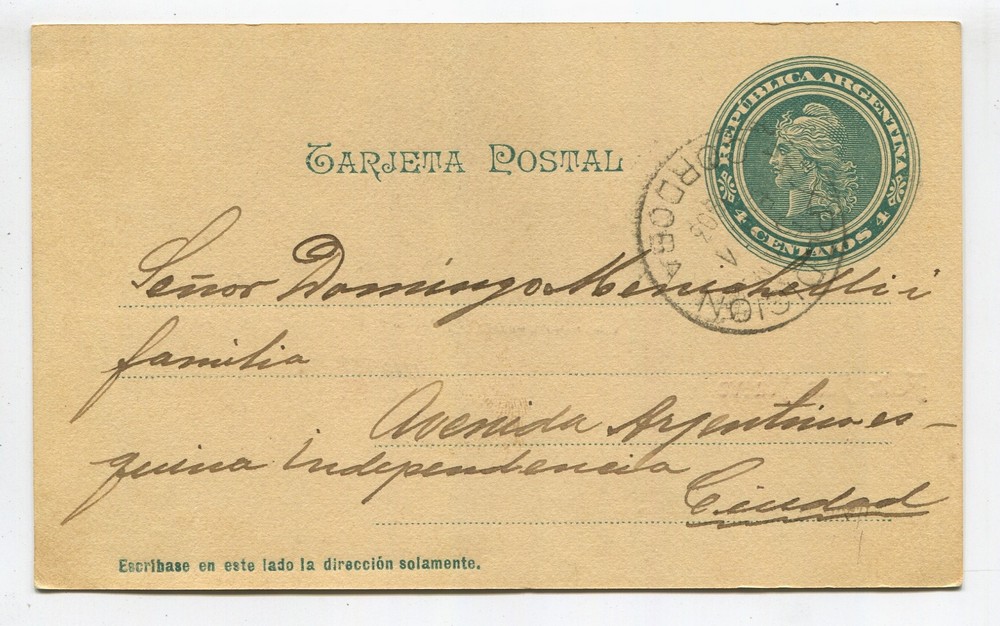 REPÚBLICA ARGENTINA
4 CENTAVOS 4
TARJETA POSTAL
CORDOBA
Señor Domingo Menichelli i
familia
Avenida Argentina es-
quina Independencia
Ciudad
Escríbase en este lado la dirección solamente.